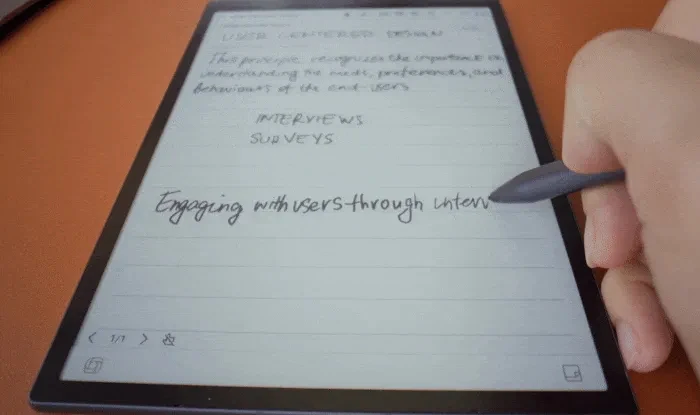 USER CENTERED DESIGN
This principle recognizes the importance of
understanding the needs, preferences, and
behaviours of the end-users
INTERVIEWS
SURVEYS
Engaging with users through interv
1/1